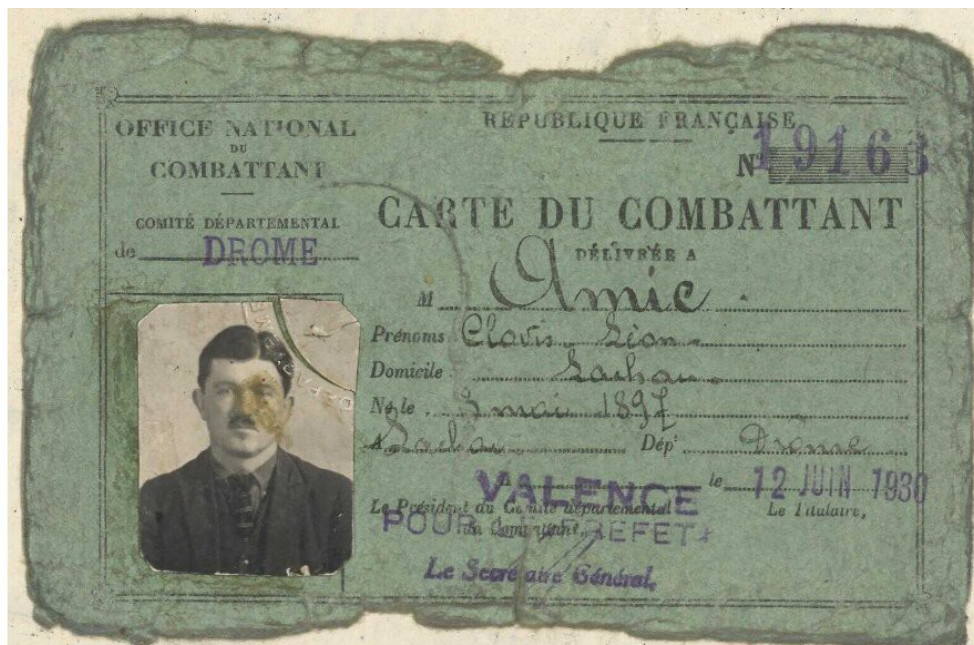 OFFICE NATIONAL
DU
COMBATTANT
COMITÉ DÉPARTEMENTAL
de DROME
RÉPUBLIQUE FRANÇAISE
N° 19163
CARTE DU COMBATTANT
DÉLIVRÉE A
M Amic
Prénoms Clovis Léon
Domicile Lachau
Né le 3 mai 1897
A Lachau Dépt Drome
VALENCE le 12 JUIN 1930
Le Président du Comité départemental
du Combattant, Le Titulaire,
POUR LE PREFET
Le Secrétaire Général,